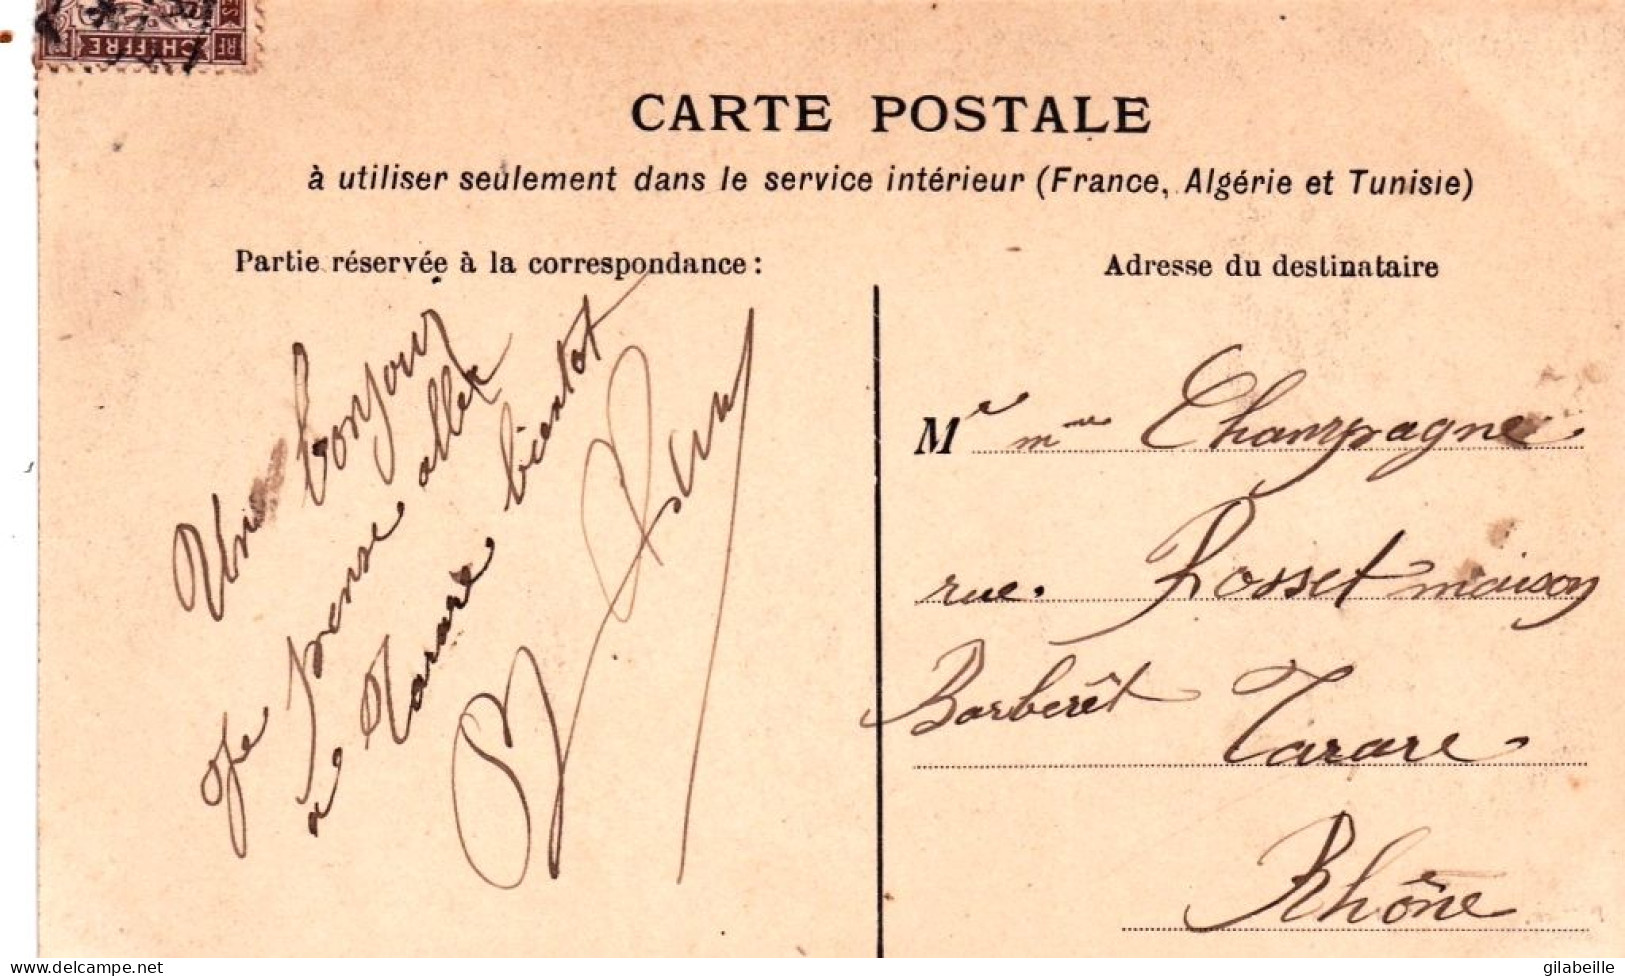 RF CHIFFRE ES
CARTE POSTALE
à utiliser seulement dans le service intérieur (France, Algérie et Tunisie)
Partie réservée à la correspondance :
Adresse du destinataire
Un bonjour
Je pense aller
à Tarare bientot
Mr mme Champagne
rue. Rosset maison
Barberêt Tarare
Rhône
www.delcampe.net
gilabeille